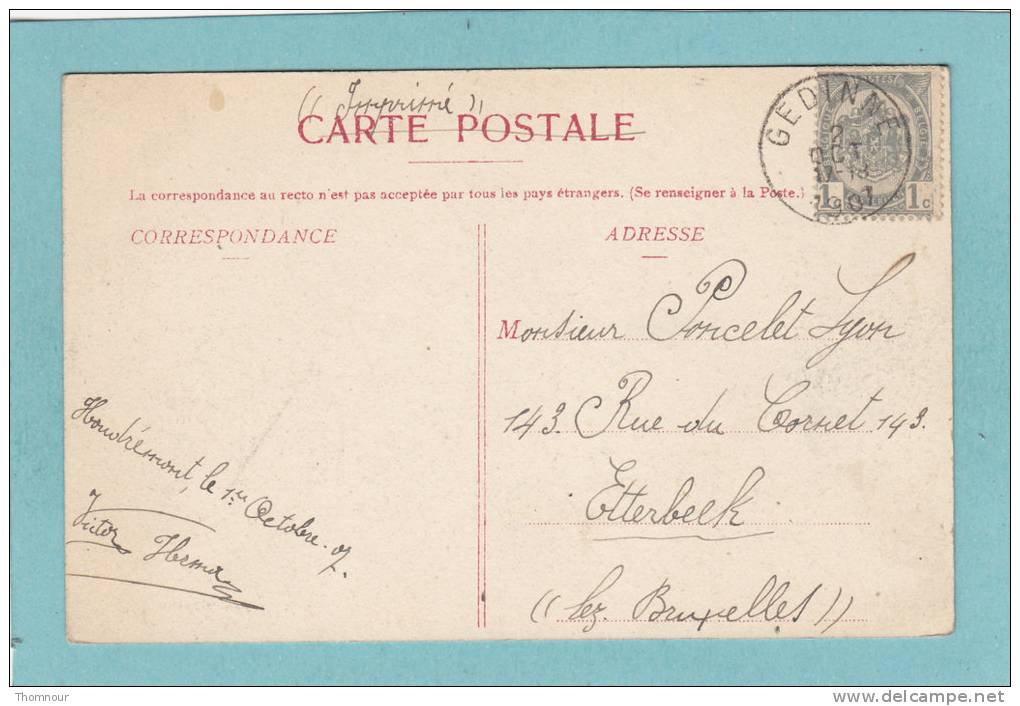 (( Imprimé ))
CARTE POSTALE
La correspondance au recto n'est pas acceptée par tous les pays étrangers. (Se renseigner à la Poste.)
CORRESPONDANCE
ADRESSE
GEDINNE
2
OCT
17-18
1907
1 1c
Monsieur Poncelet Lyon
143. Rue du Cornet 143.
Etterbeek
((lez Bruxelles))
Houdrémont, le 1er Octobre. 07.
Victor
Thomnour
delcampe.net